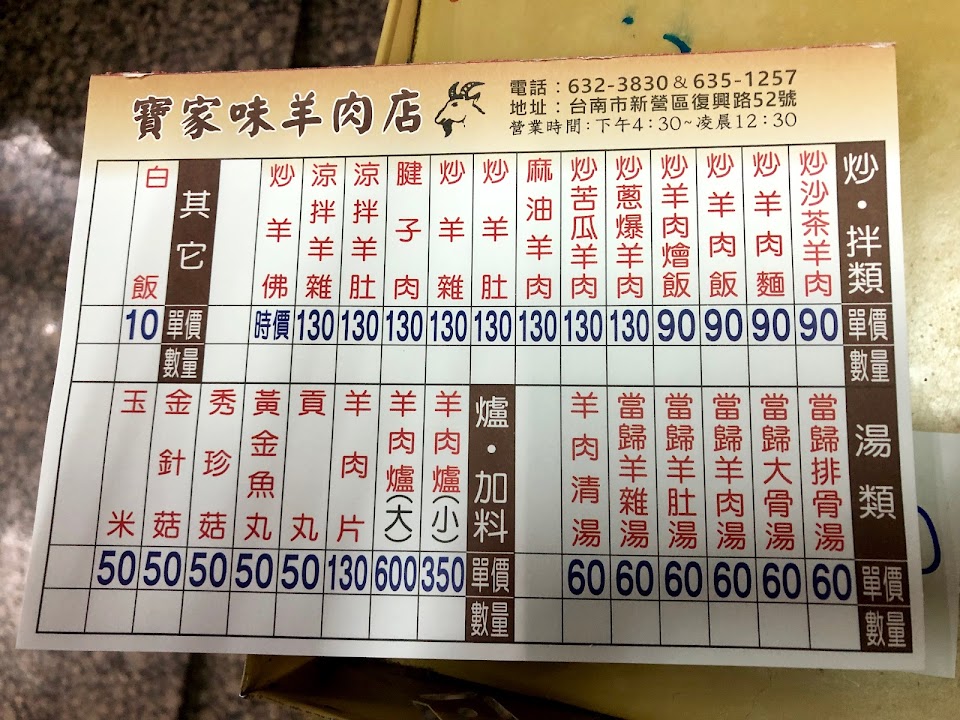 寶家味羊肉店
電話：632-3830 & 635-1257
地址：台南市新營區復興路52號
營業時間：下午4：30~凌晨12：30
炒・拌類 單價 數量
炒沙茶羊肉 90
炒羊肉麵 90
炒羊肉飯 90
炒羊肉燴飯 90
炒蔥爆羊肉 130
炒苦瓜羊肉 130
麻油羊肉 130
炒羊肚 130
炒羊雜 130
腱子肉 130
涼拌羊肚 130
涼拌羊雜 130
炒羊佛 時價
其它 單價 數量
白飯 10
湯類 單價 數量
當歸排骨湯 60
當歸大骨湯 60
當歸羊肉湯 60
當歸羊肚湯 60
當歸羊雜湯 60
羊肉清湯 60
爐・加料 單價 數量
羊肉爐(小) 350
羊肉爐(大) 600
羊肉片 130
貢丸 50
黃金魚丸 50
秀珍菇 50
金針菇 50
玉米 50